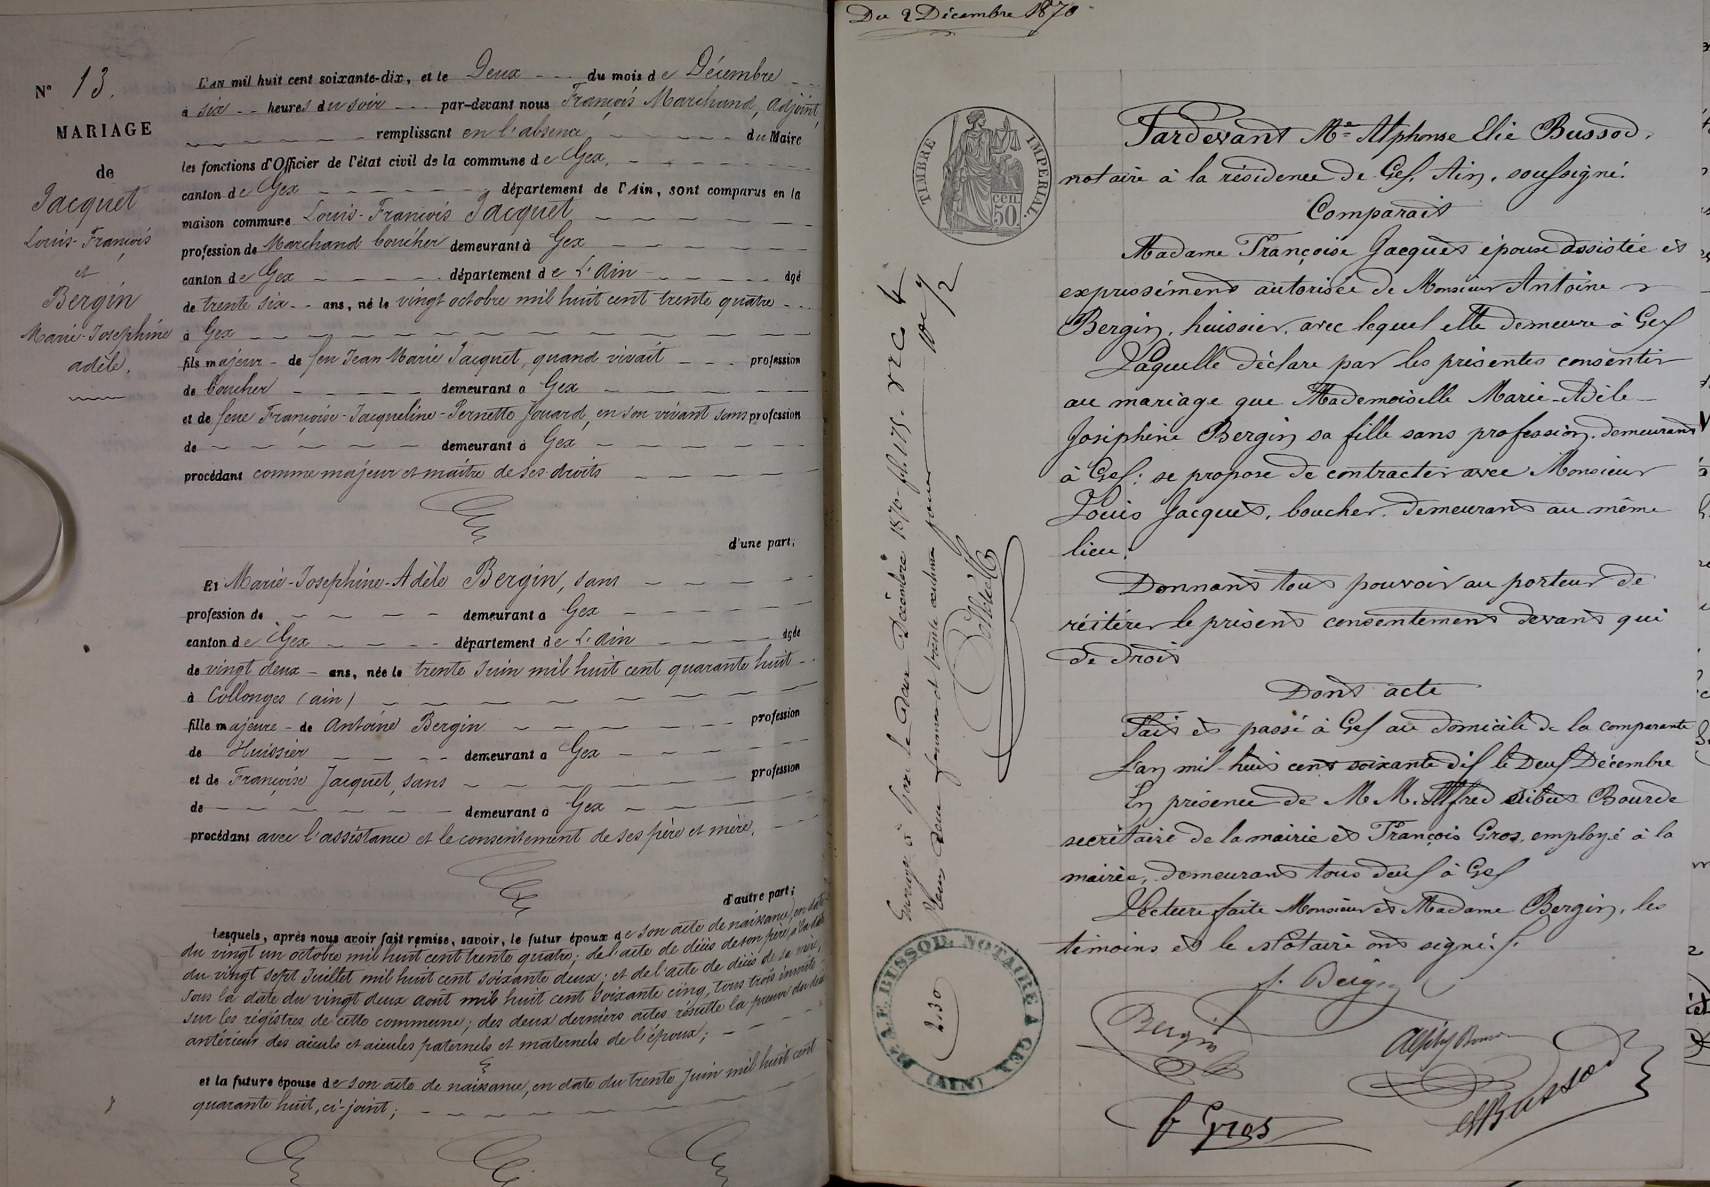 N° 13.
MARIAGE
de
Jacquet
Louis-François
et
Bergin
Marie-Josephine
adèle.
L'an mil huit cent soixante-dix, et le Deux du mois de Décembre
à six heures du soir par-devant nous François Marchand, adjoint,
remplissant en l'absence du Maire
les fonctions d'Officier de l'état civil de la commune de Gex,
canton de Gex, département de l'Ain, sont comparus en la
maison commune Louis-François Jacquet,
profession de Marchand boucher demeurant à Gex
canton de Gex département de L'Ain âgé
de trente six ans, né le vingt octobre mil huit cent trente quatre
à Gex
fils majeur de feu Jean Marie Jacquet, quand vivait profession
de Boucher demeurant à Gex
et de feue Françoise-Jacqueline-Pernette Jouard, en son vivant sans profession
de demeurant à Gex
procédant comme majeur et maître de ses droits
d'une part;
Et Marie-Josephine-Adèle Bergin, sans
profession de demeurant à Gex
canton de Gex département de L'Ain âgée
de vingt deux ans, née le trente Juin mil huit cent quarante huit
à Collonges (ain)
fille majeure de Antoine Bergin profession
de Huissier demeurant à Gex
et de Françoise Jacquet, sans profession
de demeurant à Gex
procédant avec l'assistance et le consentement de ses père et mère,
d'autre part;
Lesquels, après nous avoir fait remise, savoir, le futur époux de son acte de naissance, en date
du vingt un octobre mil huit cent trente quatre; de l'acte de décès de son père, à la date
du vingt sept Juillet mil huit cent soixante deux; et de l'acte de décès de sa mère,
sous la date du vingt deux août mil huit cent soixante cinq, tous trois inscrits
sur les régistres de cette commune; des deux derniers actes résulte la preuve du décès
antérieur des aïeuls et aïeules paternels et maternels de l'époux;
et la future épouse de son acte de naissance, en date du trente Juin mil huit cent
quarante huit, ci-joint;
Du 2 Décembre 1870
TIMBRE IMPERIAL.
50 cen.
Pardevant Me Alphonse Elie Bussod,
notaire à la résidence de Gex, Ain, soussigné.
Comparait
Madame Françoise Jacquet épouse assistée et
expressément autorisée de Monsieur Antoine
Bergin, huissier, avec lequel elle demeure à Gex
Laquelle déclare par les présentes consentir
au mariage que Mademoiselle Marie-Adèle
Joséphine Bergin sa fille sans profession, demeurant
à Gex; se propose de contracter avec Monsieur
Louis Jacquet, boucher, demeurant au même
lieu.
Donnant tous pouvoir au porteur de
réitérer le présent consentement devant qui
de droit
Dont acte
Fait et passé à Gex au domicile de la comparante
L'an mil huit cent soixante dix le Deux Décembre
En présence de M.M. Alfred Bourde
secrétaire de la mairie et François Gros, employé à la
mairie, demeurant tous deux à Gex
Lecture faite Monsieur et Madame Bergin, les
témoins et le Notaire ont signé.
f. Bergin
Bergin
f Gros
Bussod
Enregistré à Gex le deux Décembre 1870 fol. 175.
Me A.E. BUSSOD, NOTAIRE A GEX (AIN)
230